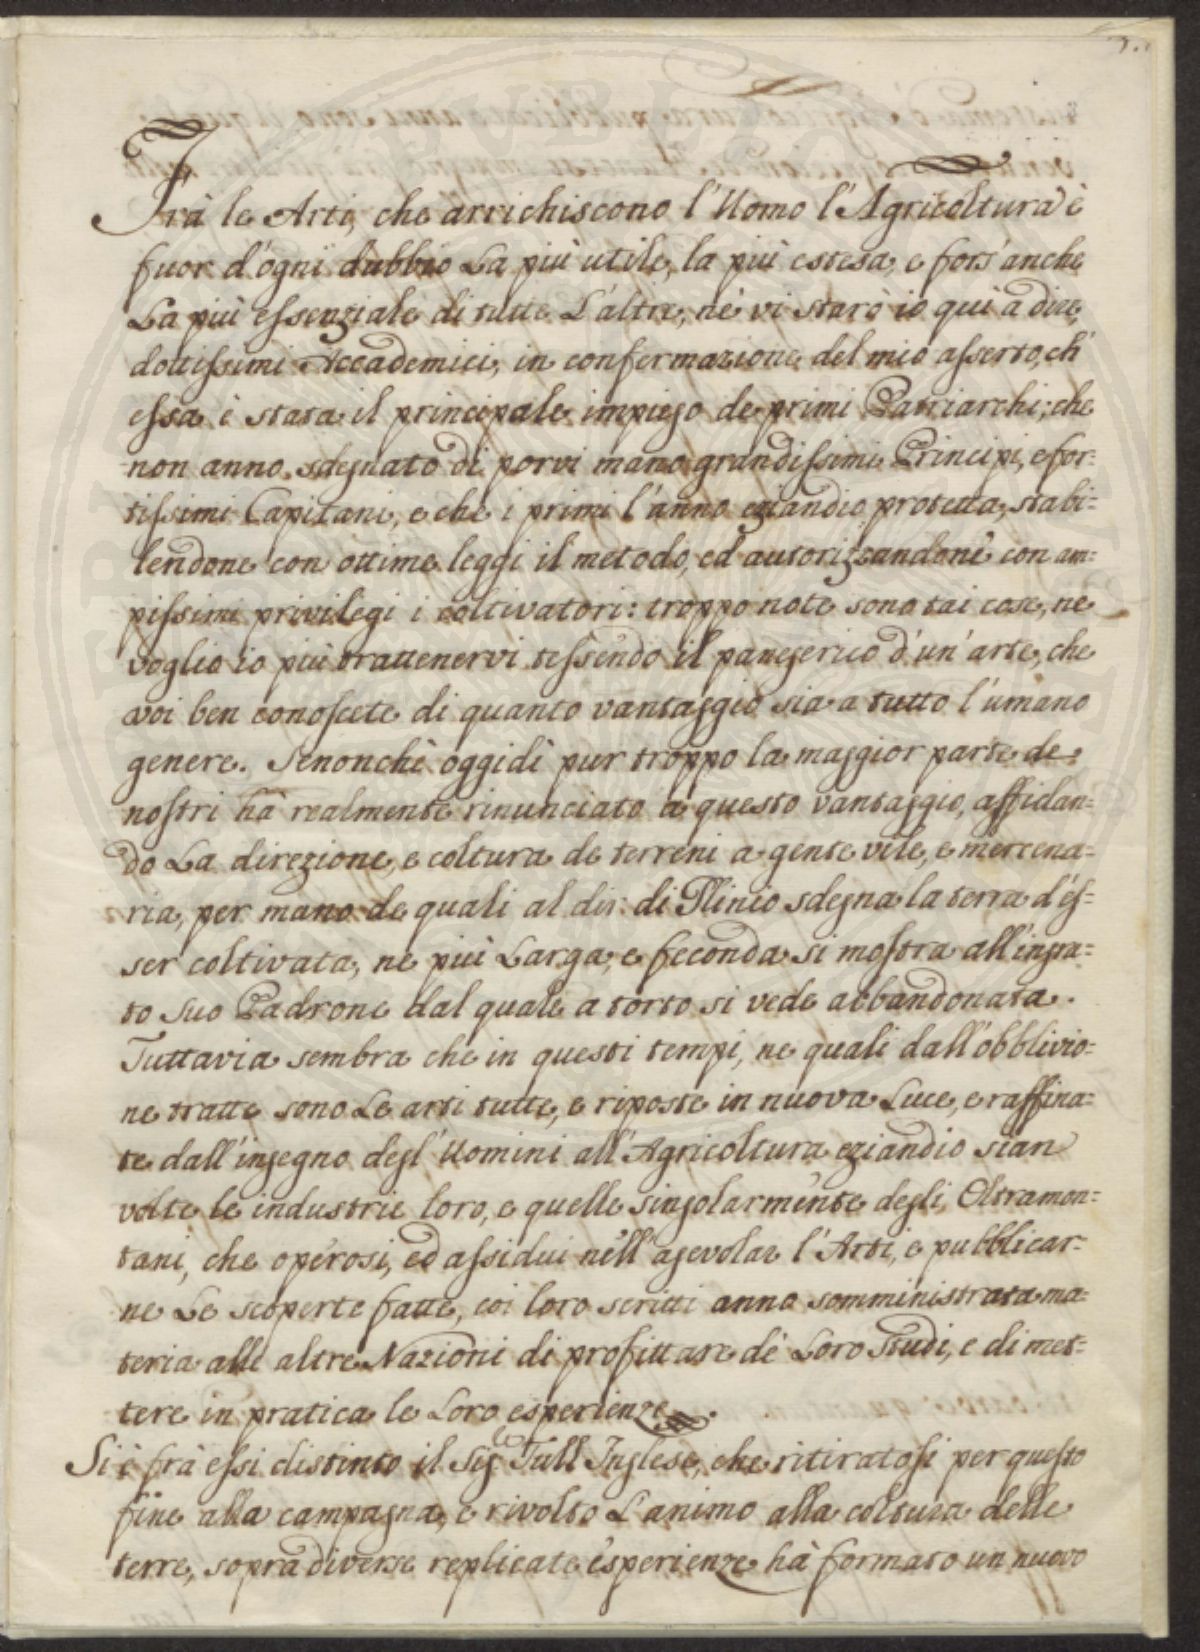 Frà le Arti, che arrichiscono l'Uomo l'Agricoltura è
fuor d'ogni dubbio La più utile, la più estesa, e fors'anche
La più essenziale di tutte L'altre, nè vi starò io quì a dire,
dottissimi Accademici, in confermazione del mio asserto, ch'
essa è stata il principale impiego de primi Patriarchi; che
non anno sdegnato di porvi mano grandissimi Principi, e for=
tissimi Capitani, e che i primi l'anno eziandio protetta, stabi=
lendone con ottime leggi il metodo, ed autorizzandone con am=
pissimi privilegi i coltivatori: troppo note sono tai cose, ne
voglio io più trattenervi tessendo il panegerico d'un'arte, che
voi ben conoscete di quanto vantaggio sia a tutto l'umano
genere. Senonchè oggidì pur troppo la maggior parte de
nostri hà realmente rinunciato a questo vantaggio, affidan=
do La direzione, e coltura de terreni a gente vile, e mercena=
ria, per mano de quali al dir di Plinio sdegna la terra d'es=
ser coltivata, ne più Larga, e feconda si mostra all'ingra=
to suo Padrone dal quale a torto si vede abbandonata.
Tuttavia sembra che in questi tempi, ne quali dall'obblivio=
ne tratte sono Le arti tutte, e riposte in nuova Luce, e raffina=
te dall'ingegno degl'Uomini all'Agricoltura eziandio sian
volte le industrie loro, e quelle singolarmente degli Oltramon=
tani, che operosi, ed assidui nell'agevolar l'Arti, e pubblicar=
ne Le scoperte fatte, coi loro scritti anno somministrata ma=
teria alle altre Nazioni di profittare de Loro studi, e di met=
tere in pratica le Loro esperienze.
Si è frà essi distinto il Sig Tull Inglese, che ritiratosi per questo
fine alla campagna, e rivolto L'animo alla coltura delle
terre, sopra diverse replicate esperienze hà formato un nuovo